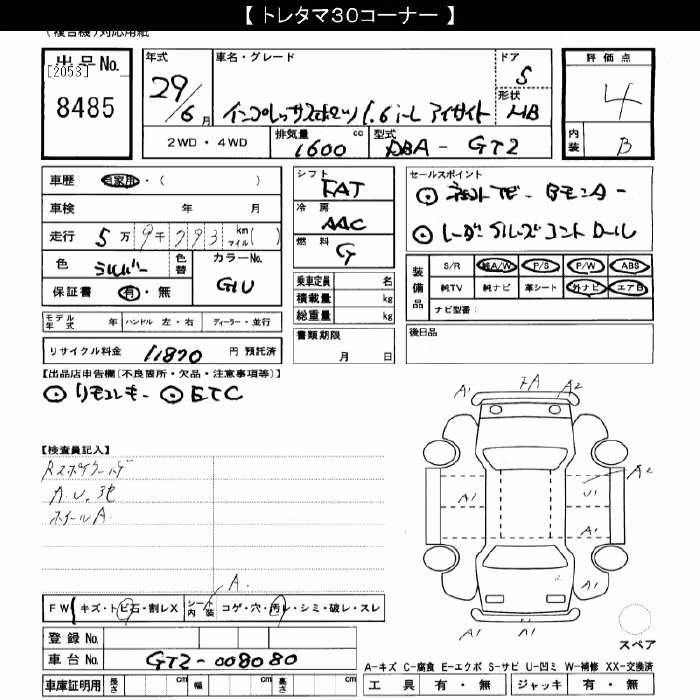 【 トレタマ30コーナー 】
(複合機)対応用紙
出品No. [2053] 8485
年式 29/6月
車名・グレード インプレッサスポーツ 1.6i-L アイサイト
ドア 5
形状 HB
評価点 4
内装 B
2WD・4WD
排気量 1600 cc
型式 DBA - GT2
車歴 自家用・( )
車検 年 月
走行 5万9千293 km マイル( )
色 シルバー 色替 カラーNo. G1U
保証書 有・無
シフト FAT
冷房 AAC
燃料 G
乗車定員 名
積載量 kg
総重量 kg
書類期限 月 日
セールスポイント
装備品 S/R 純A/W P/S P/W ABS
純TV 純ナビ 革シート 外ナビ エアB
ナビ型番:
モデル年式 年 ハンドル 左・右 ディーラー・並行
後日品
リサイクル料金 11870 円 預託済
【出品店申告欄(不良箇所・欠品・注意事項等)】
◎ リモコンキー ◎ ETC
【検査員記入】
A.U.
ホイールA
A1 A2
A1 U1 A2
A1
A1 A1
A.
FW キズ・トビ石・割レX シート内装 コゲ・穴・汚レ・シミ・破レ・スレ
登録 No.
車台 No. GT2-008080
スペア
A-キズ C-腐食 E-エクボ S-サビ U-凹ミ W-補修 XX-交換済
車庫証明用 長さ cm 幅 cm 高さ cm
工具 有・無 ジャッキ 有・無